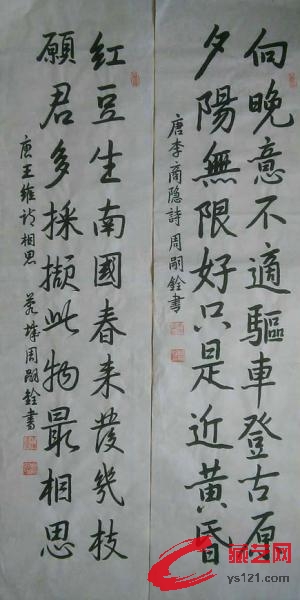 向晚意不適驅車登古原
夕陽無限好只是近黃昏
唐李商隐詩 周嗣銓書
紅豆生南國春来發幾枝
願君多採擷此物最相思
唐王維诗相思 周嗣銓書
藏艺网
ys121.com